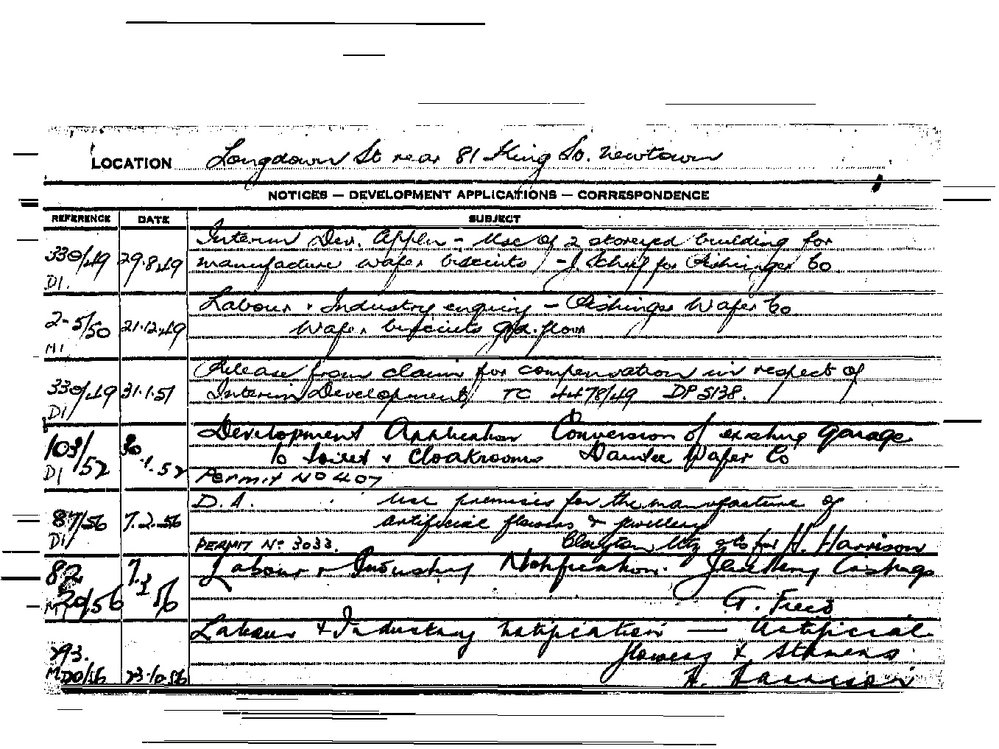 LOCATION Longdown St rear 81 King St. Newtown
NOTICES — DEVELOPMENT APPLICATIONS — CORRESPONDENCE
REFERENCE DATE SUBJECT
330/49 29.8.49 Interim Dev. Appln - Use of 2 storeyed building for
D1. manufacture wafer biscuits - J. for Co
2-5/50 21.12.49 Labour & Industry enquiry - Wafer Co
M1 Wafer biscuits grd. floor
330/49 31.1.51 Release from claim for compensation in respect of
D1 Interim Development TC 4478/49 DP5138.
103/52 30.1.52 Development Application Conversion of existing garage
D1 to toilet & Cloakrooms Dandee Wafer Co
Permit No 407
87/56 7.2.56 D.A. Use premises for the manufacture of
D1 artificial flowers & jewellery
PERMIT No 3033. Clayton for H. Harrison
82 Labour & Industry Notification. Jewellery Castings
M20/56 G.
293. Labour & Industry notification — Artificial
flowers & Stamens
M20/56 23.10.56 H. Harrison